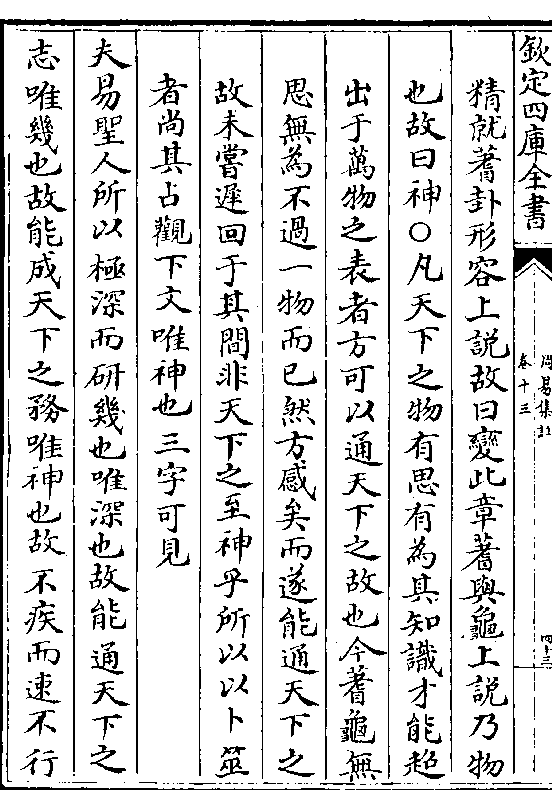 欽定四庫全書
周易集註
卷十三
四十三
精就蓍卦形容上說故曰變此章蓍與龜上說乃物
也故曰神〇凡天下之物有思有為其知識才能超
出于萬物之表者方可以通天下之故也今蓍龜無
思無為不過一物而已然方感矣而遂能通天下之
故未嘗遲回于其間非天下之至神乎所以以卜筮
者尚其占觀下文唯神也三字可見
夫易聖人所以極深而研幾也唯深也故能通天下之
志唯幾也故能成天下之務唯神也故不疾而速不行